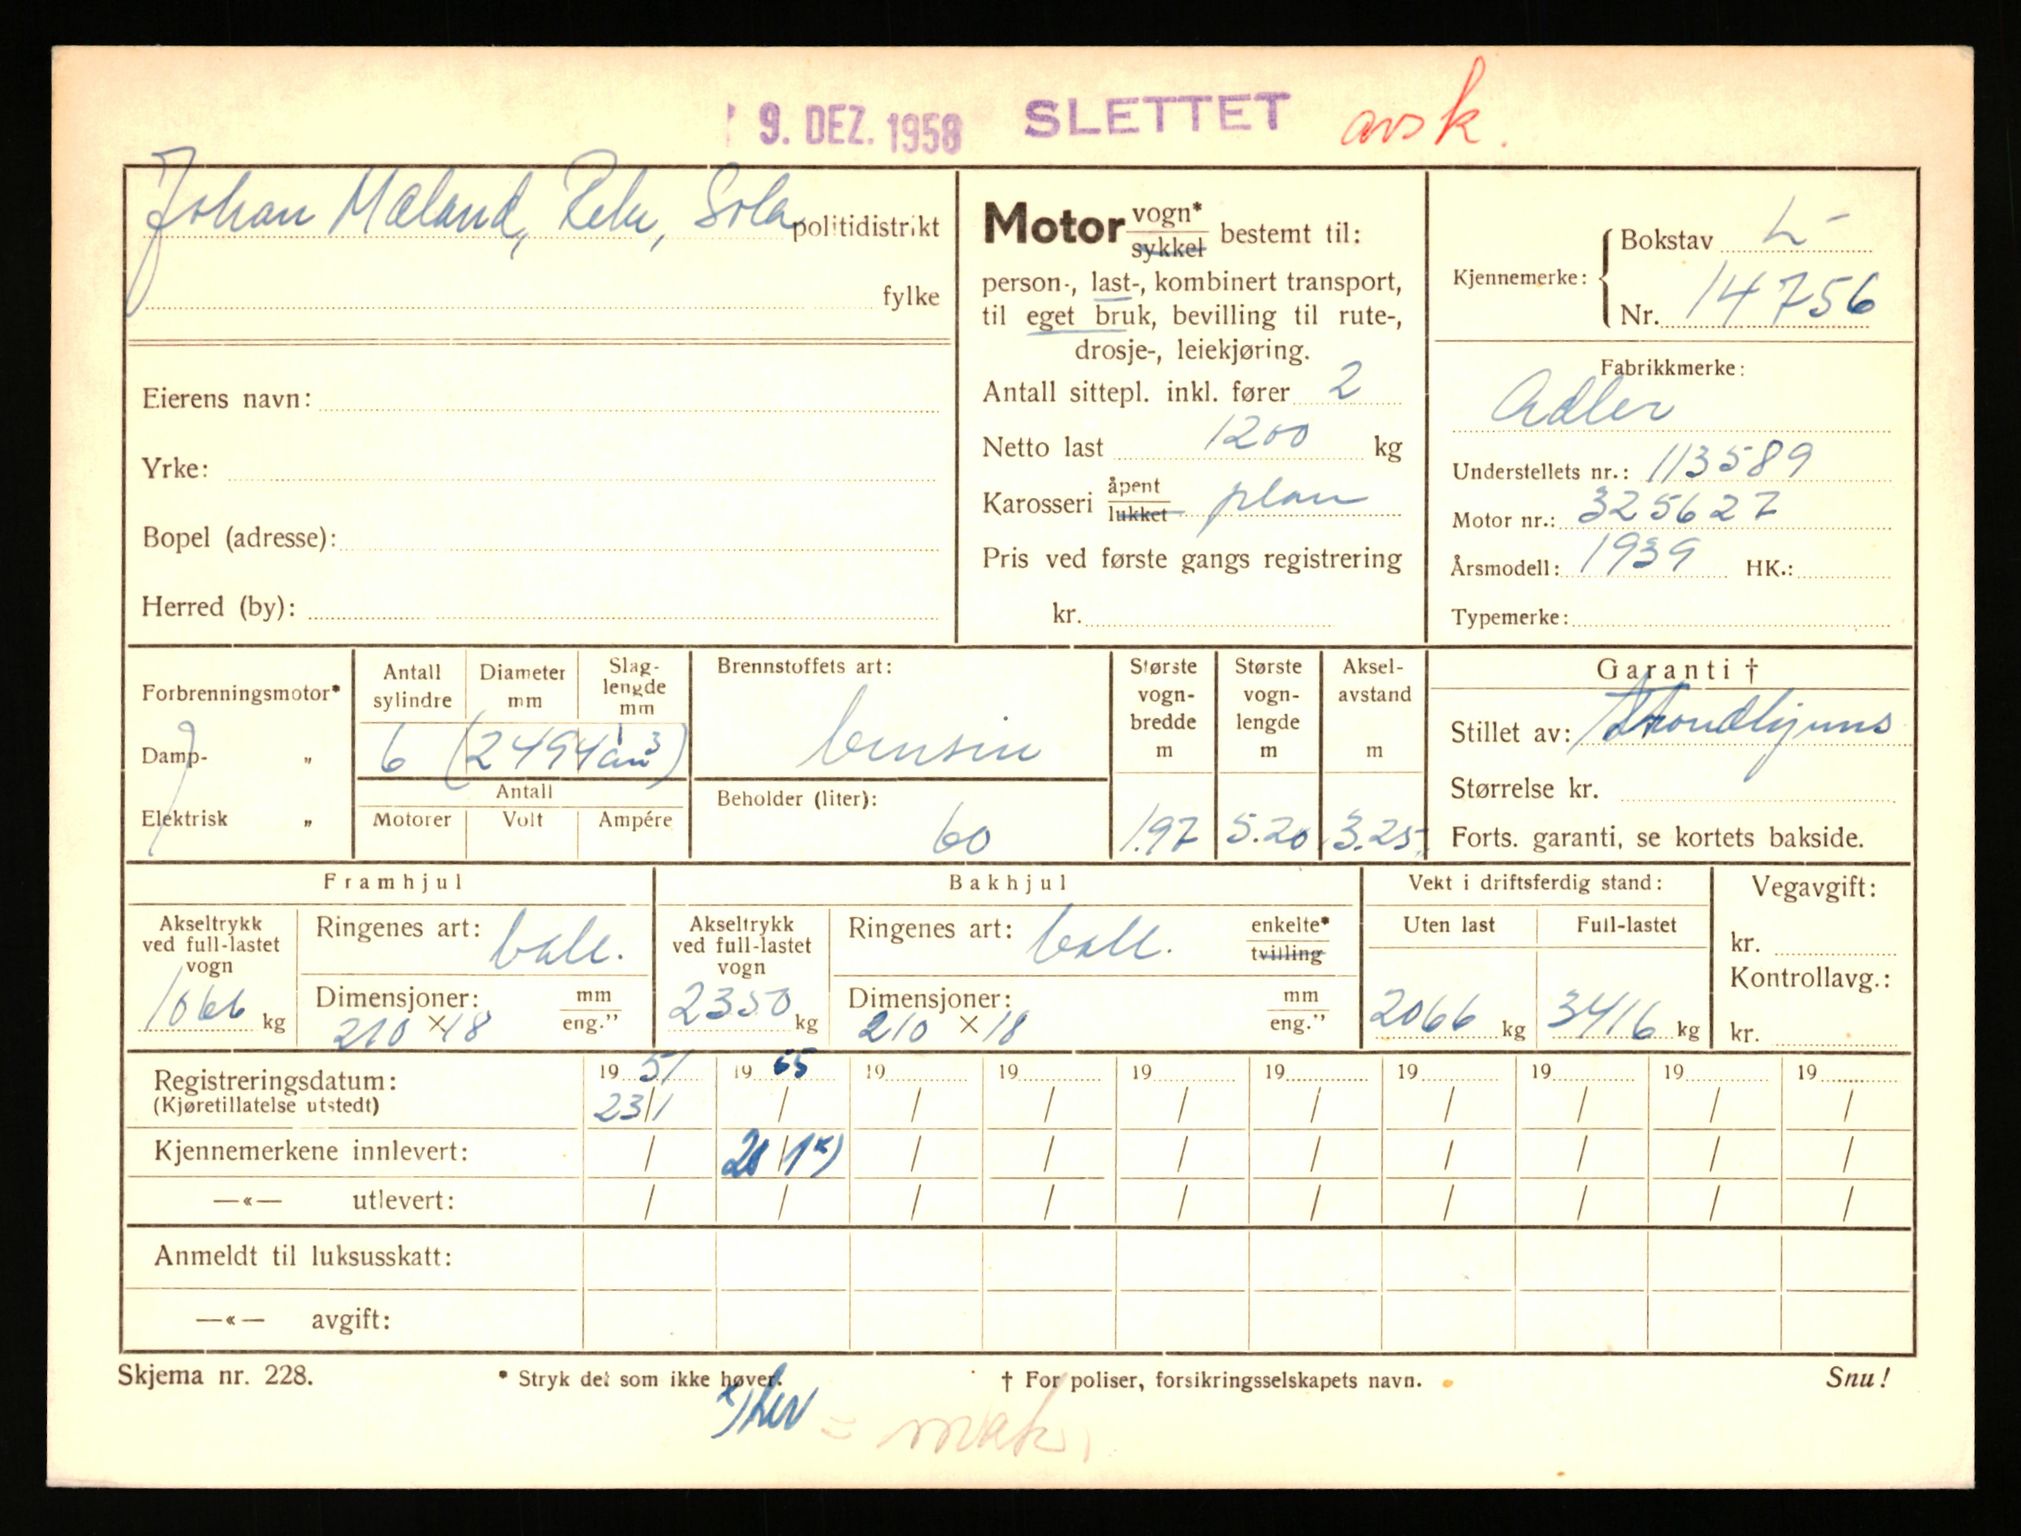 9. DEZ. 1958 SLETTET avsk.
Johan Mæland, Reke, Sola politidistrikt
fylke
Eierens navn:
Yrke:
Bopel (adresse):
Herred (by):
Motor vogn* sykkel bestemt til:
person-, last-, kombinert transport,
til eget bruk, bevilling til rute-,
drosje-, leiekjøring.
Antall sittepl. inkl. fører 2
Netto last 1200 kg
Karosseri åpent lukket plan
Pris ved første gangs registrering
kr.
Kjennemerke: Bokstav L-
Nr. 14756
Fabrikkmerke:
Adler
Understellets nr.: 113589
Motor nr.: 325627
Årsmodell: 1939 HK.:
Typemerke:
Forbrenningsmotor*
Damp- „
Elektrisk „
Antall sylindre
Diameter mm
Slag-lengde mm
6 (2494 cm³)
Antall
Motorer Volt Ampére
Brennstoffets art:
bensin
Beholder (liter):
60
Største vogn-bredde m
1.97
Største vogn-lengde m
5.20
Aksel-avstand m
3.25
Garanti †
Stillet av: Trondhjems
Størrelse kr.
Forts. garanti, se kortets bakside.
Framhjul
Akseltrykk ved full-lastet vogn
1066 kg
Ringenes art: ball.
Dimensjoner: mm eng.”
210 × 18
Bakhjul
Akseltrykk ved full-lastet vogn
2350 kg
Ringenes art: ball. enkelte* tvilling
Dimensjoner: mm eng.”
210 × 18
Vekt i driftsferdig stand:
Uten last Full-lastet
2066 kg 3416 kg
Vegavgift:
kr.
Kontrollavg.:
kr.
Registreringsdatum: 19 51 19 55 19 19 19 19 19 19 19 19
(Kjøretillatelse utstedt) 23/1 / / / / / / / / /
Kjennemerkene innlevert: / 20/1 x) / / / / / / / /
—«— utlevert: / / / / / / / / / /
Anmeldt til luksusskatt:
—«— avgift:
Skjema nr. 228. * Stryk det som ikke høver. † For poliser, forsikringsselskapets navn. Snu!